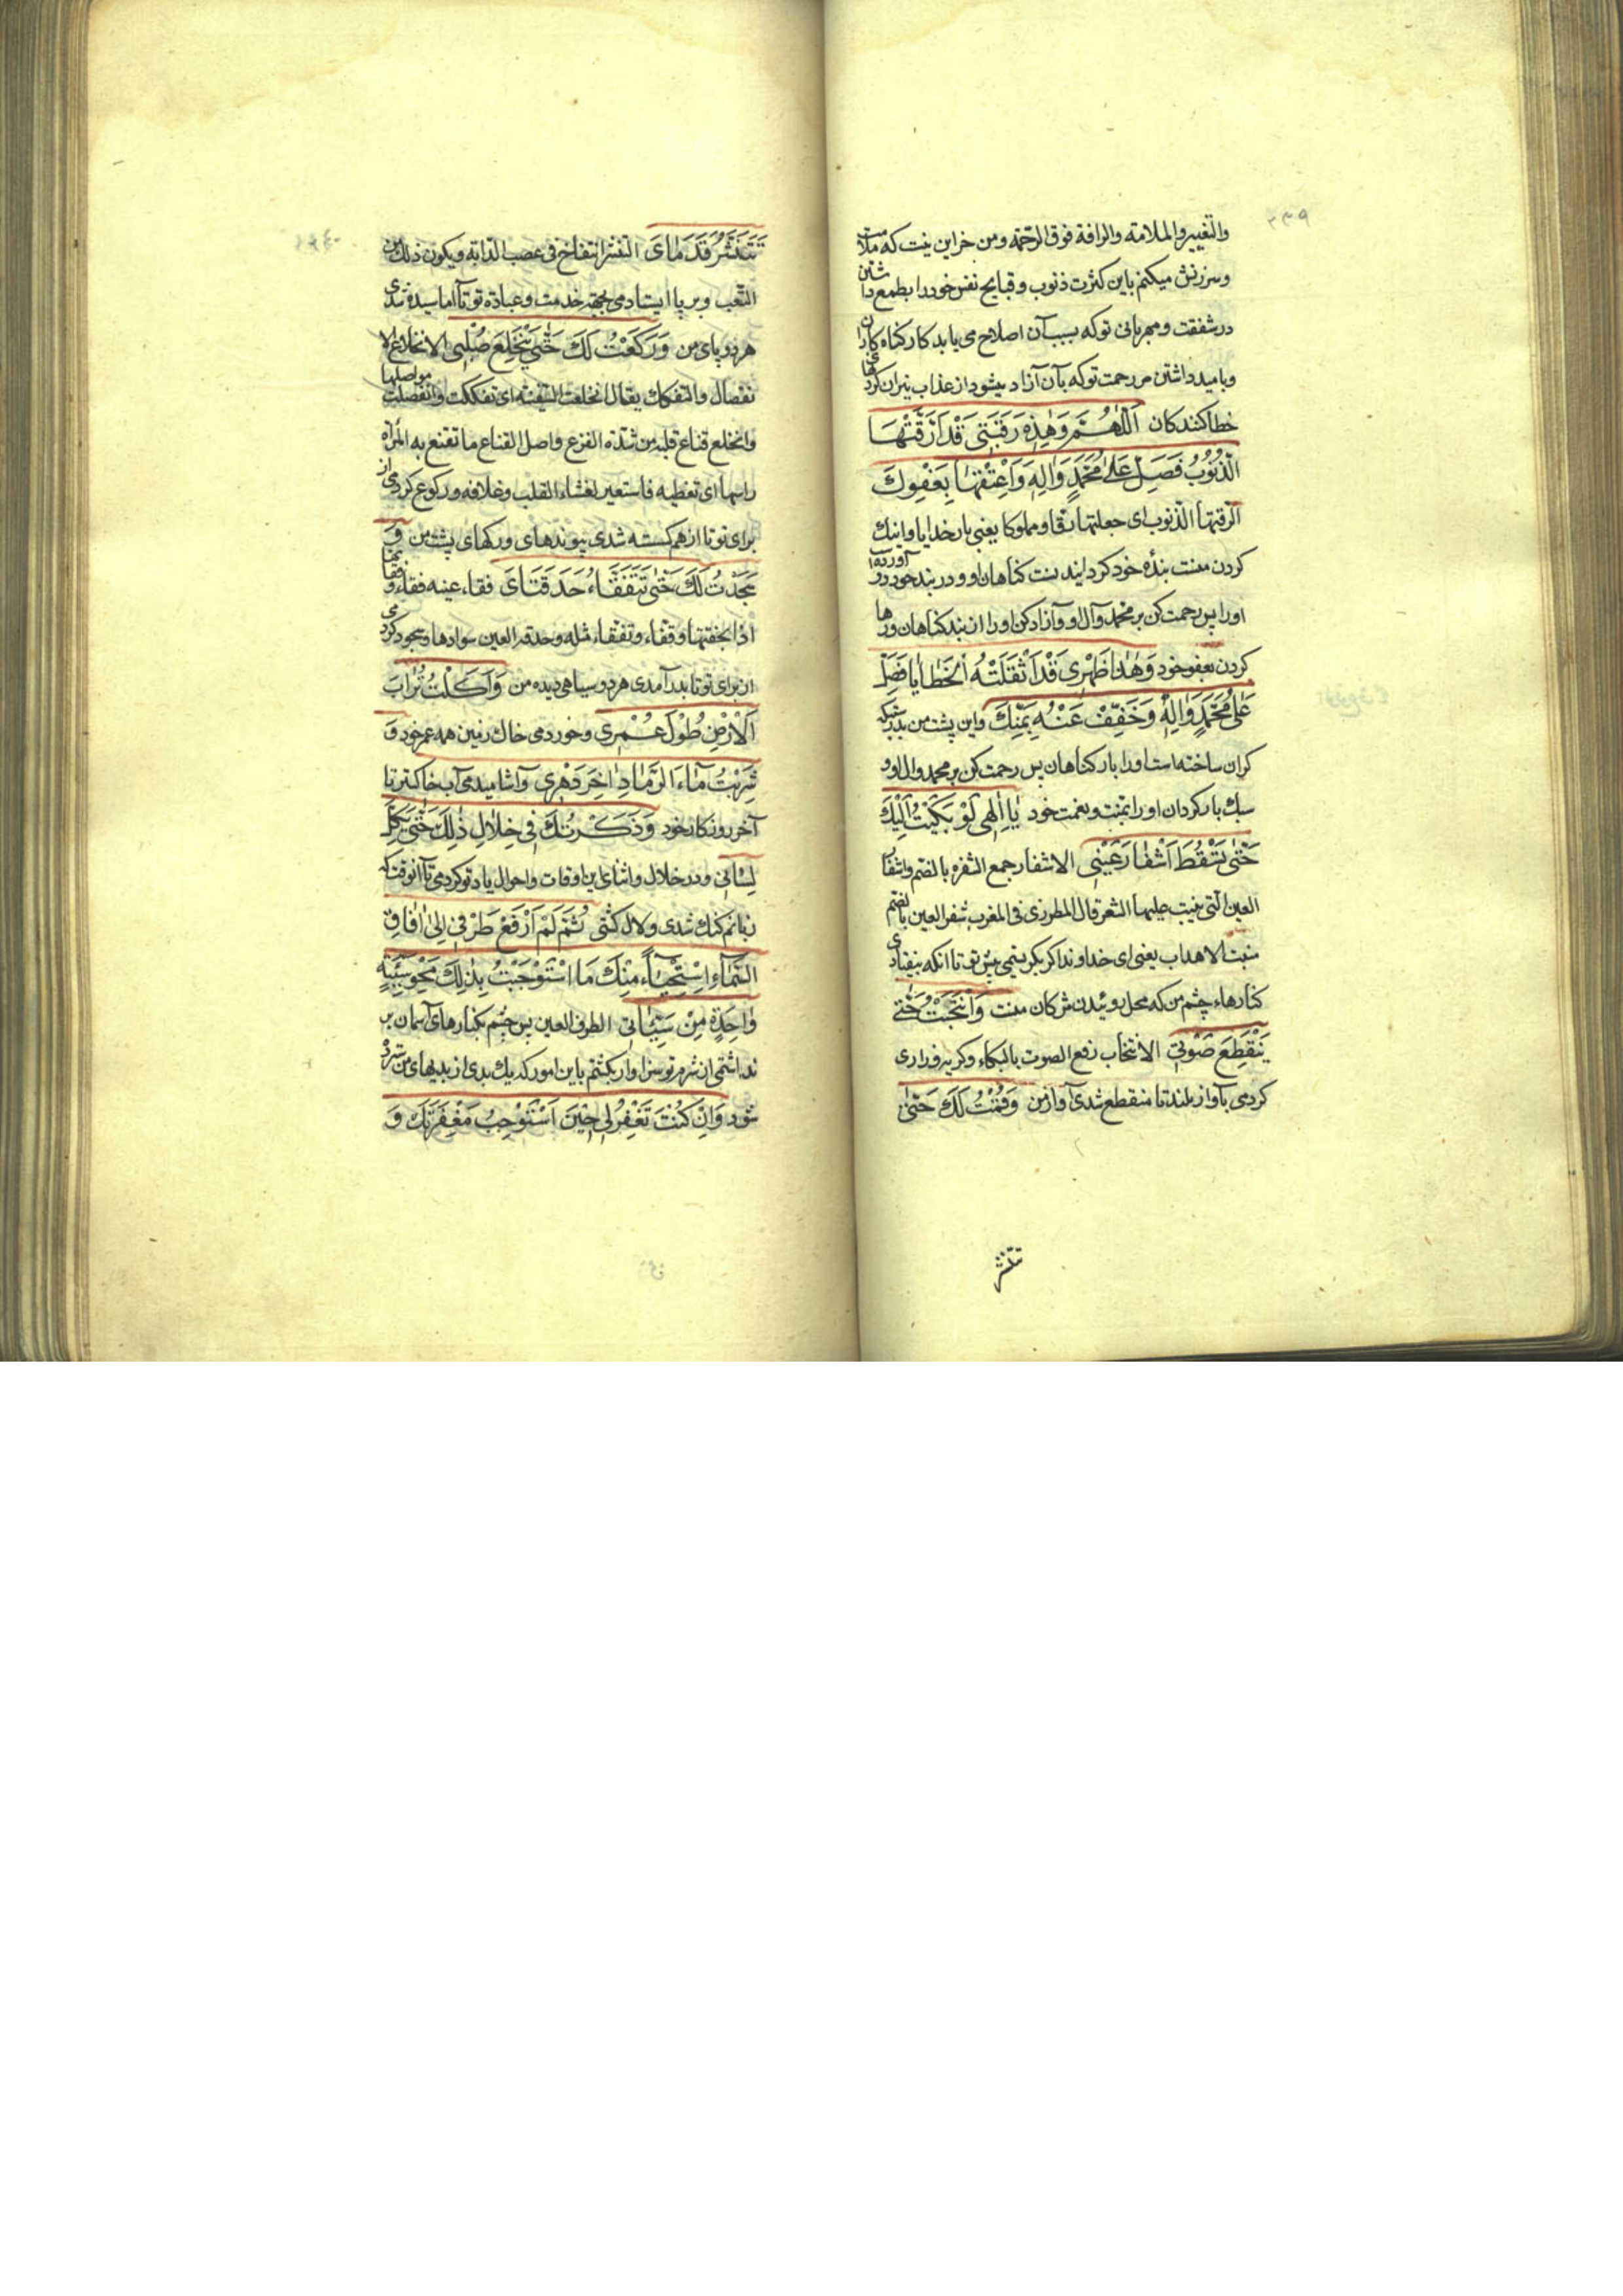 ۲۳۹
والتغییر والملامة والرافة فوق الرحمة و من خر این نیت که ملامت
و سرزنش میکنم باین کثرت ذنوب و قبایح نفس خود را بطمع داشتن
در شفقت و مهربانی تو که بسبب آن اصلاح می یابد کار کناه کاران
و بامید داشتن من رحمت تو که بآن آزاد میشود از عذاب نیران کردهای
خطا کنندکان اَللّٰهُمَّ وَهٰذِهِ رَقَبَتِي قَدْ اَرَقَّتْهَا
الذُّنُوبُ فَصَلِّ عَلٰى مُحَمَّدٍ وَاٰلِهِ وَاَعْتِقْهَا بِعَفْوِكَ
ارقتها الذنوب ای جعلتها رقا و مملوکا یعنی بار خدایا و اینك
کردن منست بندهٔ خود کردانیدست کناهان او و در بند خود در آورده
او را پس رحمت کن بر محمد و آل او و آزاد کن او را از بند کناهان و رها
کردن بعفو خود وَهٰذَا ظَهْرِي قَدْ اَثْقَلَتْهُ الْخَطَايَا فَصَلِّ
عَلٰى مُحَمَّدٍ وَاٰلِهِ وَخَفِّفْ عَنْهُ بِمَنِّكَ و این پشت من بدرستیکه
کران ساخته است او را بار کناهان پس رحمت کن بر محمد و ال او و
سبك بار کردان او را بمنت و نعمت خود يَا اِلٰهِي لَوْ بَكَيْتُ اِلَيْكَ
حَتّٰى تَسْقُطَ اَشْفَارُ عَيْنَيَّ الاشفار جمع الشفره بالضم واشفار
العین التی ینبت علیها الشعر قال المطرزی فی المغرب شفر العین بالضم
منبت الاهداب یعنی ای خداوندا کر بکریتمی پیش تو تا انکه بیفتادی
کنارهاء چشم من که محل روئیدن مژکان منست وَانْتَحَبْتُ حَتّٰى
يَنْقَطِعَ صَوْتِي الانتحاب رفع الصوت بالبکاء و کریه و زاری
کردمی بآواز بلند تا منقطع شدی آواز من وَقُمْتُ لَكَ حَتّٰى
تتنشر
۲۴۰
تَتَنَشَّرَ قَدَمَايَ التنشر انتفاخ فی عصب الدابة ویکون ذلك من
التعب و بر پا ایستادمی بجهة خدمت و عبادة تو تا آماسیده شدی
هر دو پای من وَرَكَعْتُ لَكَ حَتّٰى يَنْخَلِعَ صُلْبِي الانخلاع الا
نفصال والتفکك یقال انخلعت السفینه ای تفککت وانفصلت مواصلها
وانخلع قناع قلبه من شدة الفزع واصل القناع ما تقنع به المراة
راسها ای تغطیه فاستعیر لغشاء القلب وغلافه و رکوع کردمی از
برای تو تا از هم کسسته شدی پیوندهای و رکهای پشت من وَ
سَجَدْتُ لَكَ حَتّٰى تَتَفَقَّاَ حَدَقَتَايَ فقاء عینه فقاء و فقاها
اذا بخقها وفقاء وتفقاء مثله وحدقه العین سوادها و سجود کردمی
از برای تو تا بدر آمدی هر دو سیاهی دیده من وَاَكَلْتُ تُرَابَ
الْاَرْضِ طُولَ عُمْرِي و خوردمی خاك زمین همه عمر خود وَ
شَرِبْتُ مَاءَ الرَّمَادِ اٰخِرَ دَهْرِي و آشامیدمی آب خاکستر تا
آخر روزکار خود وَذَكَرْتُكَ فِي خِلَالِ ذٰلِكَ حَتّٰى يَكِلَّ
لِسَانِي و در خلال و اثنای این اوقات و احوال یاد تو کردمی تا آنوقت که
زبانم کنك شدی و لال کشتی ثُمَّ لَمْ اَرْفَعْ طَرْفِي اِلٰى اٰفَاقِ
السَّمَاءِ اِسْتِحْيَاءً مِنْكَ مَا اسْتَوْجَبْتُ بِذٰلِكَ مَحْوَ سَيِّئَةٍ
وَاحِدَةٍ مِنْ سَيِّئَاتِي الطرف العین پس چشم بکنارهای آسمان بر
نداشتمی از شرم تو سزاوار نکشتم باین امور که یك بدی از بدیهای من سترده
شود وَاِنْ كُنْتَ تَغْفِرُ لِي حِينَ اَسْتَوْجِبُ مَغْفِرَتَكَ وَ